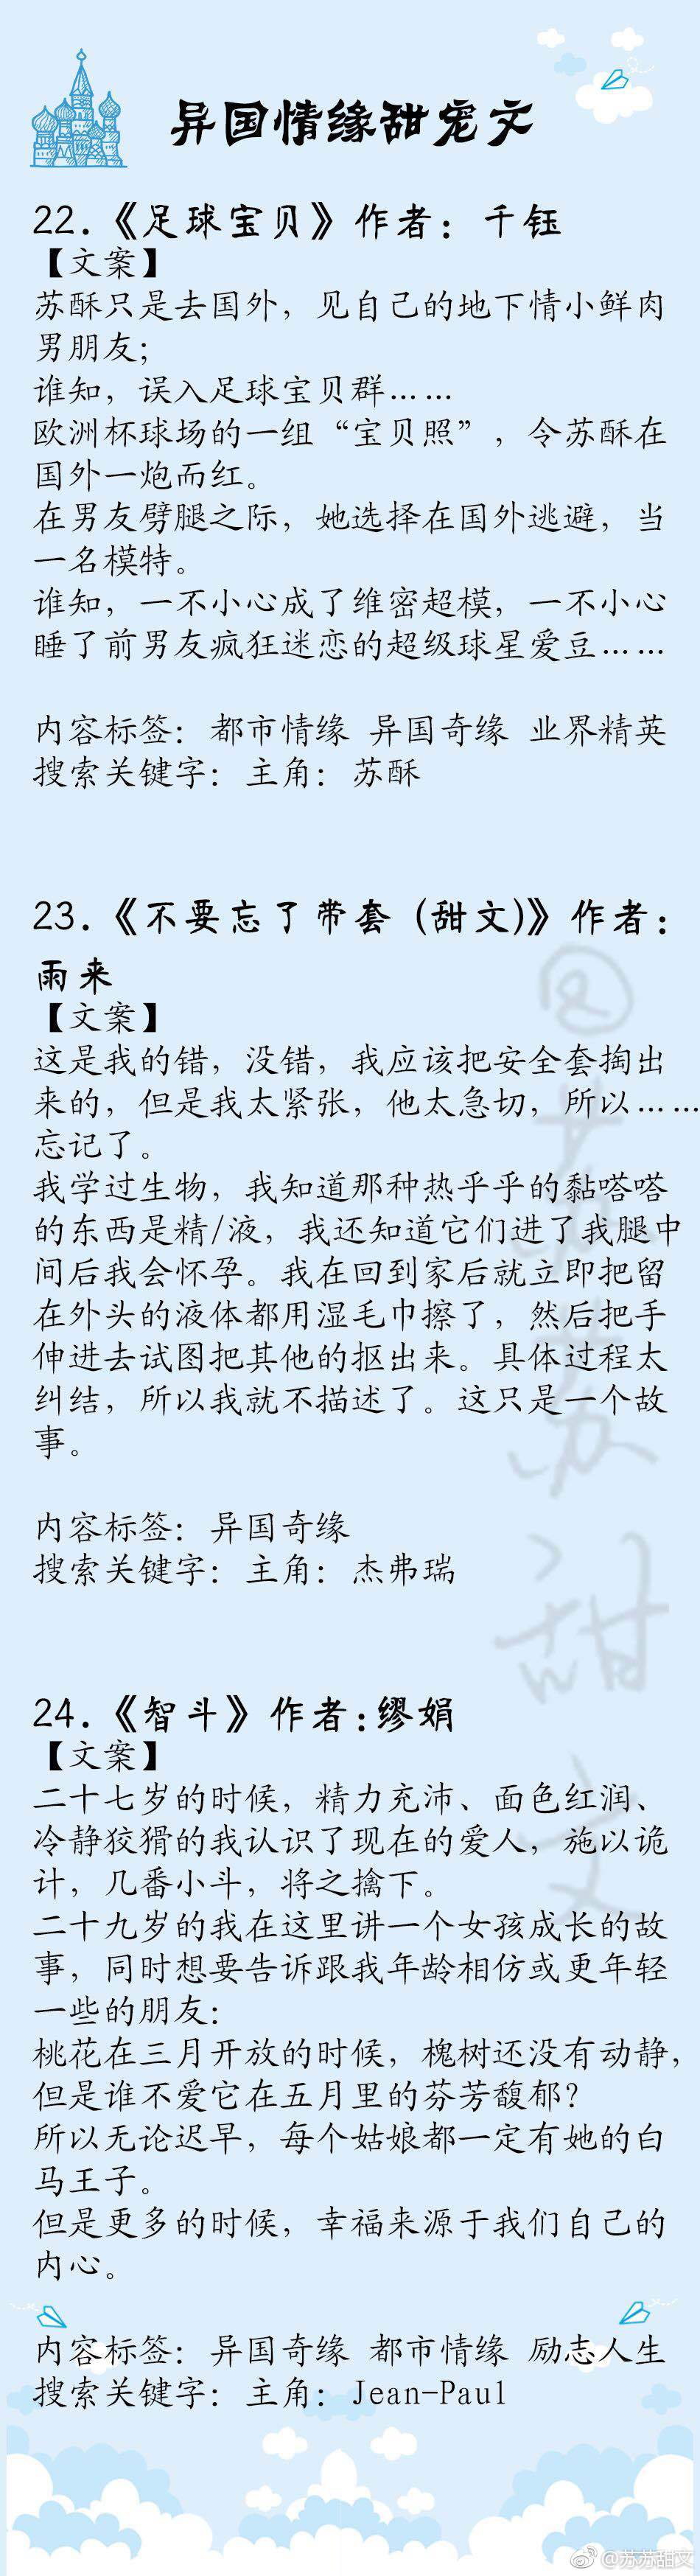 异国情缘甜宠文
22.《足球宝贝》作者：千钰
【文案】
苏酥只是去国外，见自己的地下情小鲜肉
男朋友；
谁知，误入足球宝贝群……
欧洲杯球场的一组“宝贝照”，令苏酥在
国外一炮而红。
在男友劈腿之际，她选择在国外逃避，当
一名模特。
谁知，一不小心成了维密超模，一不小心
睡了前男友疯狂迷恋的超级球星爱豆……
内容标签：都市情缘 异国奇缘 业界精英
搜索关键字：主角：苏酥
23.《不要忘了带套（甜文)》作者：
雨来
【文案】
这是我的错，没错，我应该把安全套掏出
来的，但是我太紧张，他太急切，所以……
忘记了。
我学过生物，我知道那种热乎乎的黏嗒嗒
的东西是精/液，我还知道它们进了我腿中
间后我会怀孕。我在回到家后就立即把留
在外头的液体都用湿毛巾擦了，然后把手
伸进去试图把其他的抠出来。具体过程太
纠结，所以我就不描述了。这只是一个故
事。
内容标签：异国奇缘
搜索关键字：主角：杰弗瑞
24.《智斗》作者:缪娟
【文案】
二十七岁的时候，精力充沛、面色红润、
冷静狡猾的我认识了现在的爱人，施以诡
计，几番小斗，将之擒下。
二十九岁的我在这里讲一个女孩成长的故
事，同时想要告诉跟我年龄相仿或更年轻
一些的朋友：
桃花在三月开放的时候，槐树还没有动静，
但是谁不爱它在五月里的芬芳馥郁？
所以无论迟早，每个姑娘都一定有她的白
马王子。
但是更多的时候，幸福来源于我们自己的
内心。
内容标签：异国奇缘 都市情缘 励志人生
搜索关键字：主角：Jean-Paul
@苏苏甜文
@苏苏甜文